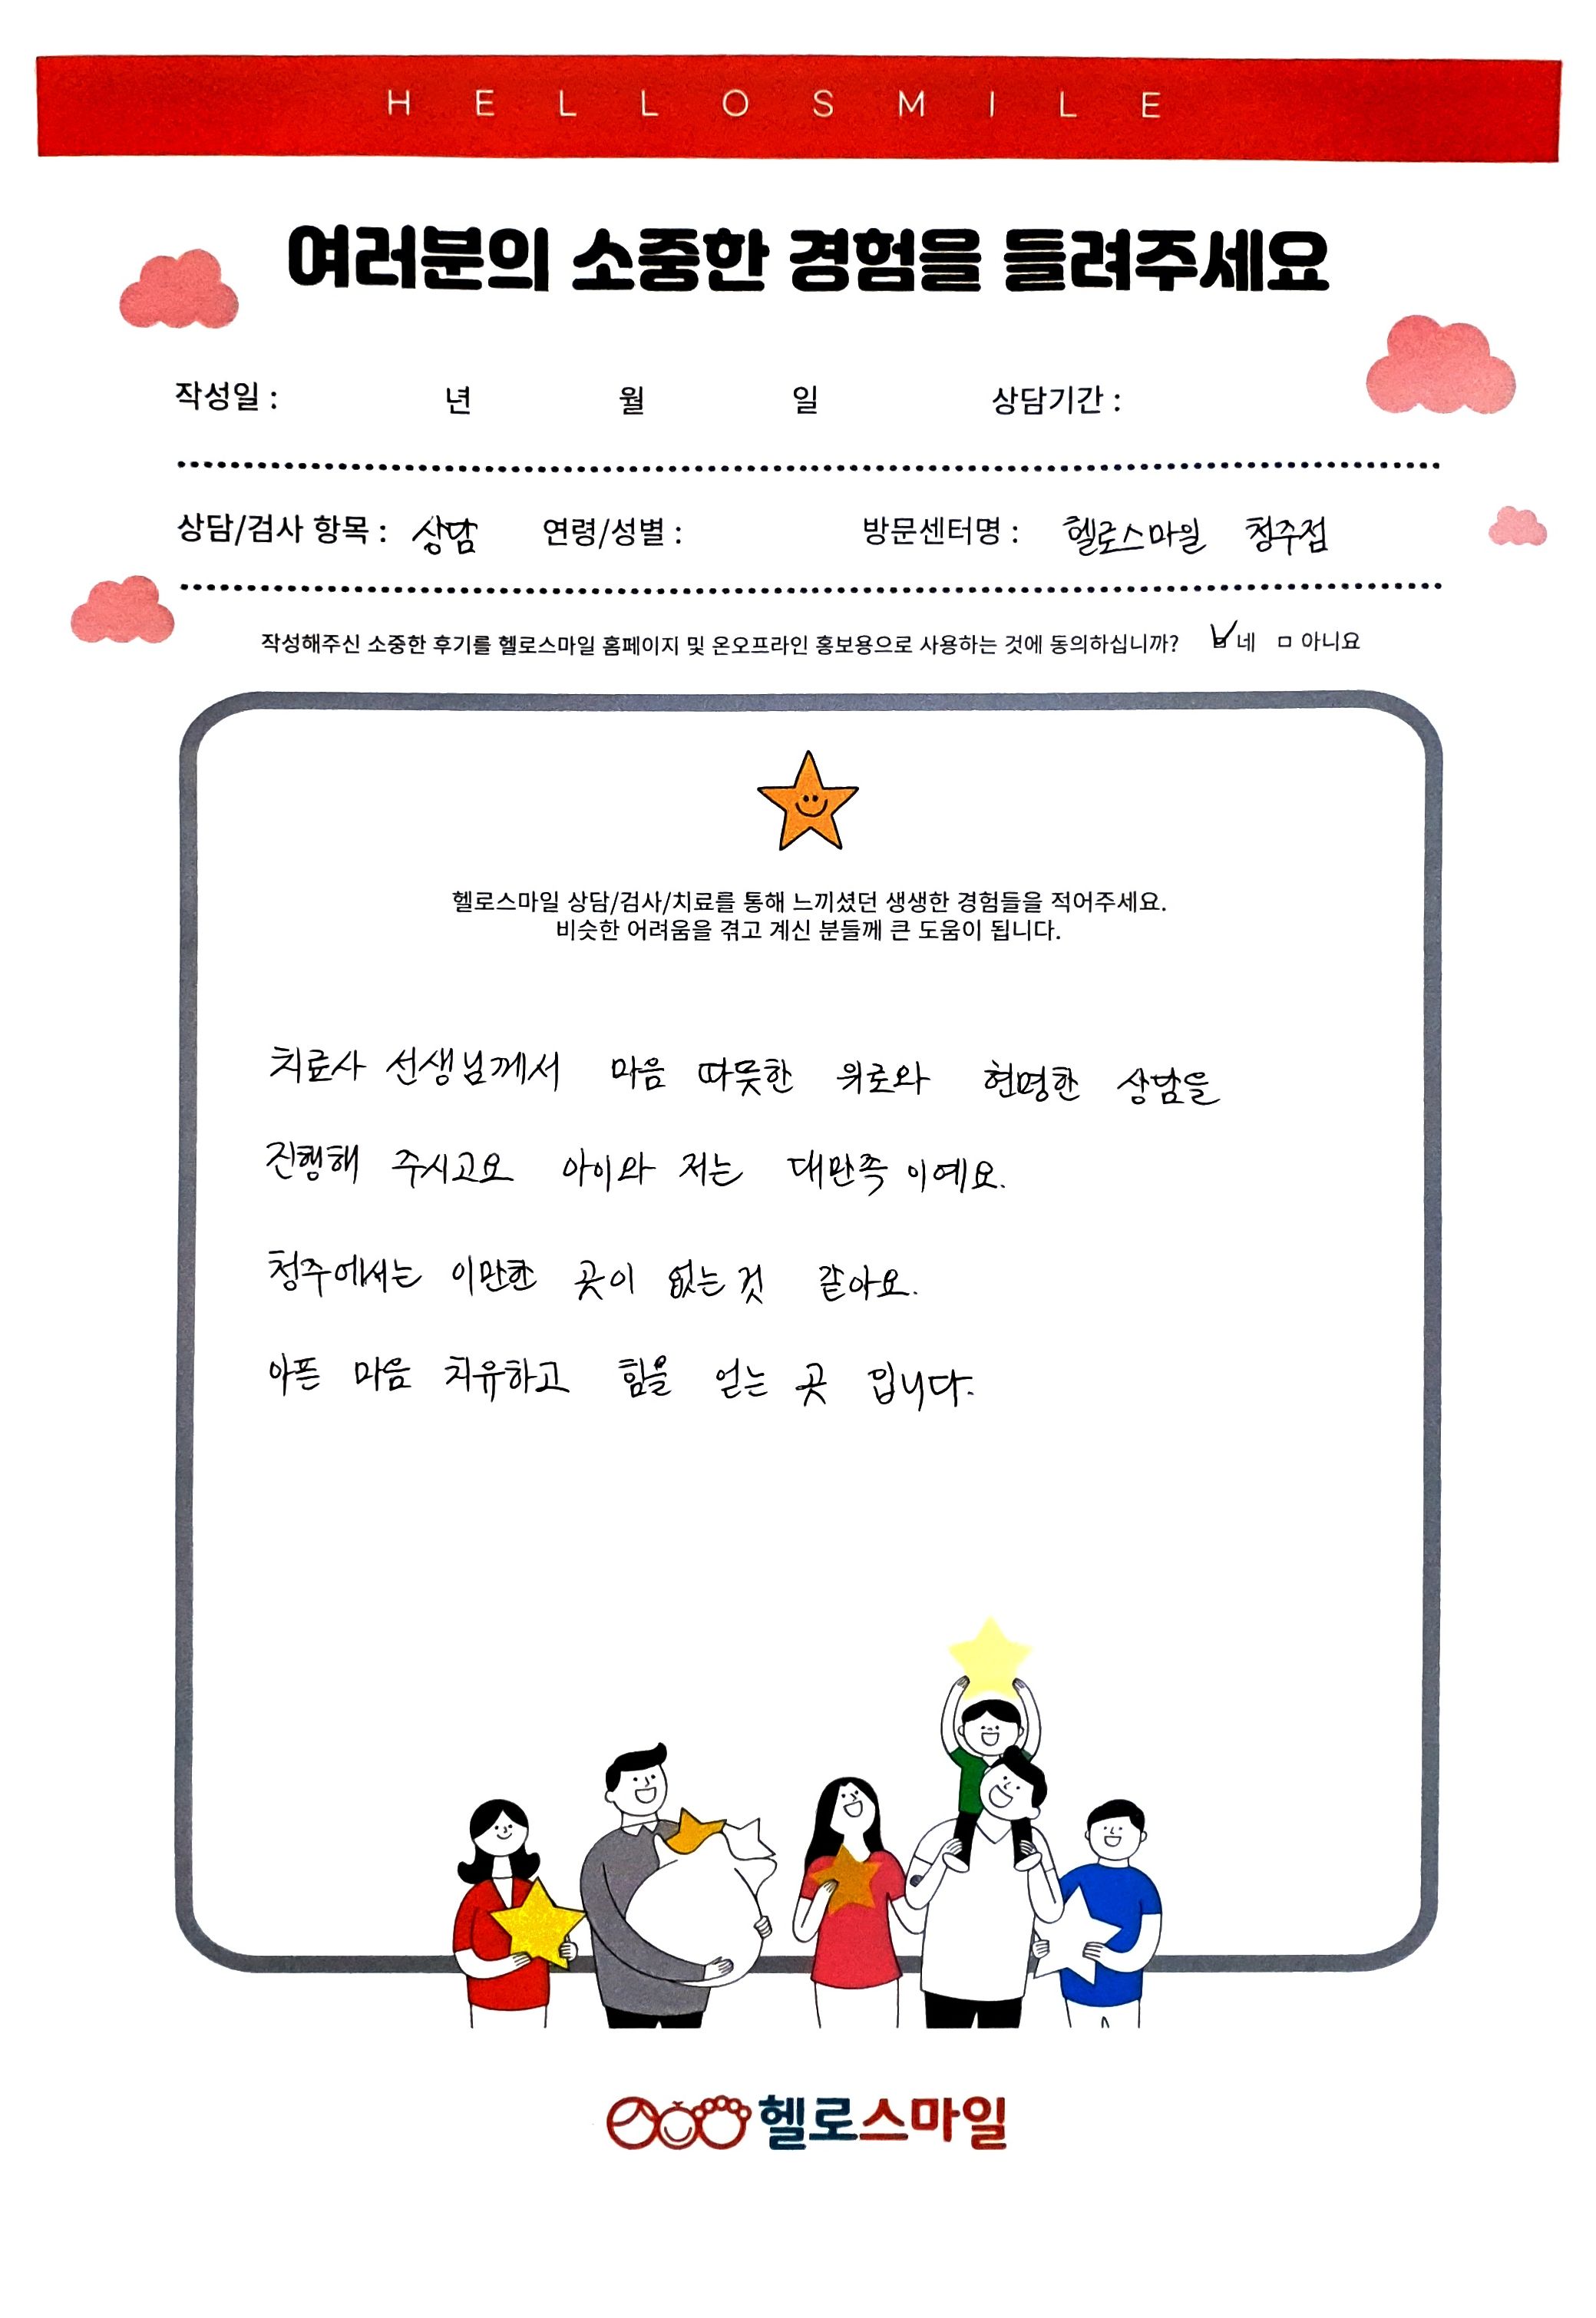 HELLOSMILE
여러분의 소중한 경험을 들려주세요
작성일 : 년 월 일 상담기간 :
상담/검사 항목 : 상담 연령/성별 : 방문센터명 :헬로스마일 청주점
작성해주신 소중한 후기를 헬로스마일 홈페이지 및 온오프라인 홍보용으로 사용하는 것에 동의하십니까? ☑네 □ 아니요
헬로스마일 상담/검사/치료를 통해 느끼셨던 생생한 경험들을 적어주세요.
비슷한 어려움을 겪고 계신 분들께 큰 도움이 됩니다.
치료사 선생님께서 마음 따뜻한 위로와 현명한 상담을
진행해 주시고요 아이와 저는 대만족 이예요.
청주에서는 이만한 곳이 없는 것 같아요.
아픈 마음 치유하고 힘을 얻는 곳 입니다.
헬로스마일